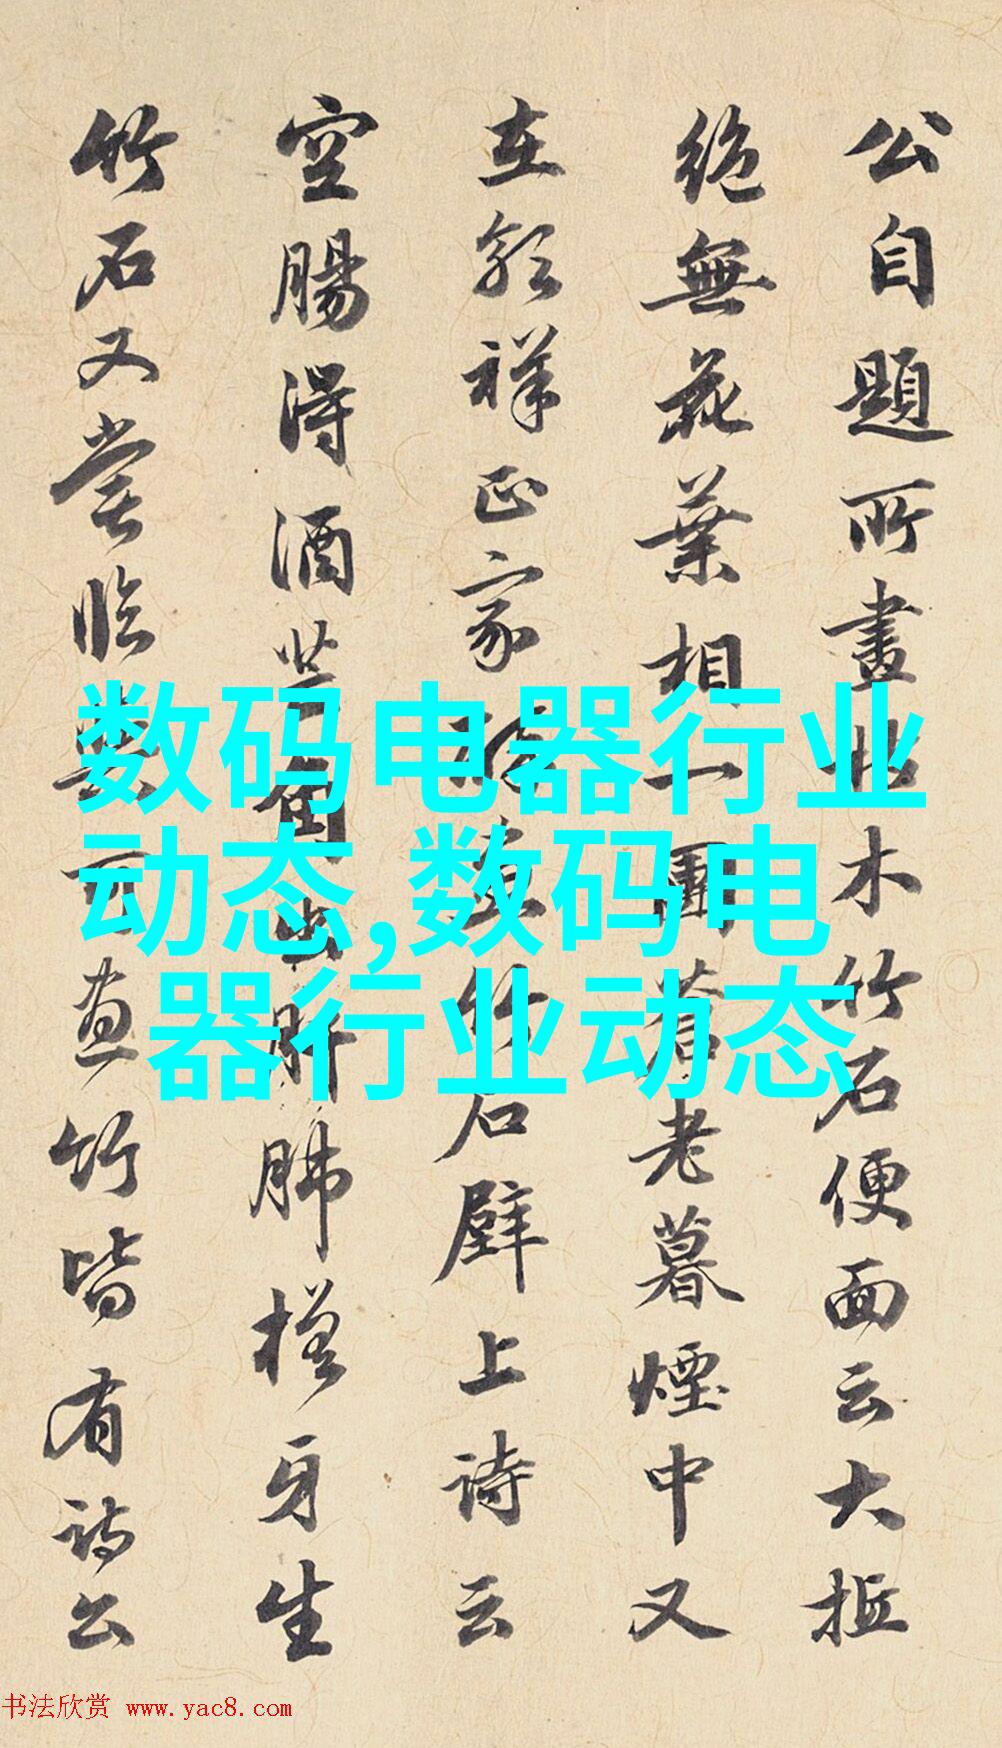 公自題所畫枯木竹石便面云大抵
絶無花葉相一團蒼老暮煙中又
在郭祥正家 畫竹石壁上詩云
空腸得酒芒角出肝肺槎牙生
竹石又嘗臨 可畫竹皆有詩公
数码电器行业
动态,数码电
器行业动态
书法欣赏 www.yac8.com